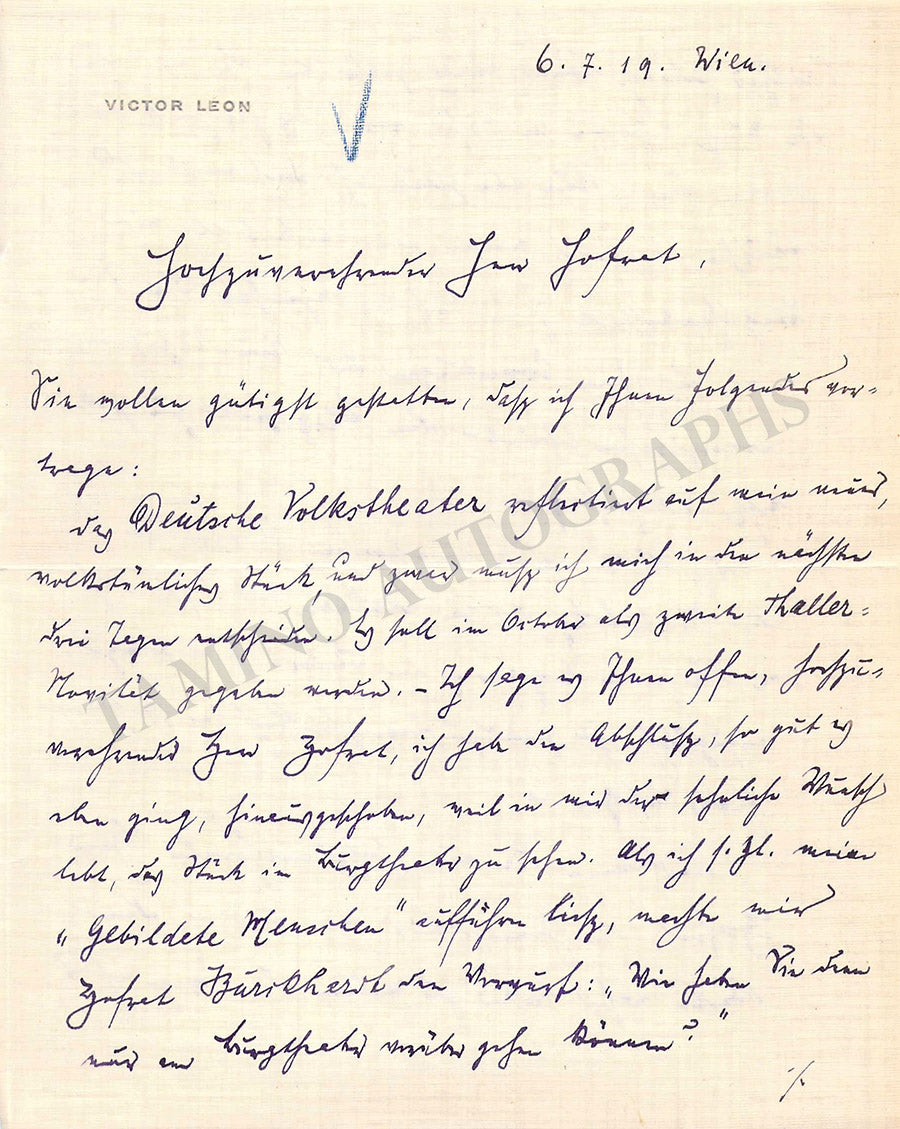 6. 7. 19. Wien.
VICTOR LEON
Hochzuverehrender Herr Hofrat,
Sie wollen gütigst gestatten, dass ich Ihnen Folgendes vor-
trage:
das Deutsche Volkstheater reflectiert auf mein neues,
volkstümliches Stück, und zwar muss ich mich in den nächsten
drei Tagen entscheiden. Es soll im October als zweite Thaller-
Novität gegeben werden. – Ich sage es Ihnen offen, hochzu-
verehrender Herr Hofrat, ich habe den Abschluss, so gut es
eben ging, hinausgeschoben, weil in mir der sehnliche Wunsch
lebt, das Stück im Burgtheater zu sehen. Als ich s. Zt. meine
„Gebildete Menschen" aufführen liess, machte mir
Hofrat Burckhardt den Vorwurf: „Wie haben Sie denn
nur am Burgtheater vorüber gehen können?"
./.
TAMINO AUTOGRAPHS